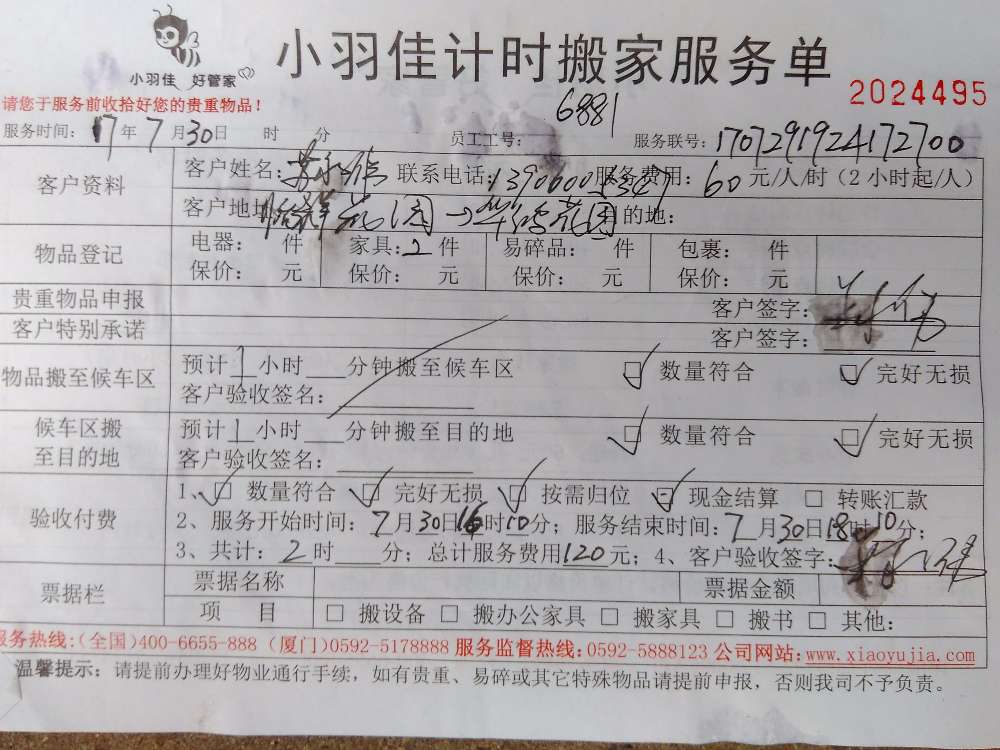 小羽佳 好管家
小羽佳计时搬家服务单
2024495
请您于服务前收拾好您的贵重物品！
6881
服务时间：17年7月30日 时 分 员工工号： 服务联号：1707291924172700
客户资料
客户姓名： 联系电话： 服务费用：60元/人/时（2小时起/人）
客户地 花园→华鸿花园的地：
物品登记
电器： 件 家具：2件 易碎品： 件 包裹： 件
保价： 元 保价： 元 保价： 元 保价： 元
贵重物品申报 客户签字：
客户特别承诺 客户签字：
物品搬至候车区
预计1小时___分钟搬至候车区 ☑ 数量符合 ☑ 完好无损
客户验收签名：
候车区搬至目的地
预计1小时___分钟搬至目的地 ☑ 数量符合 ☑ 完好无损
客户验收签名：
验收付费
1、☑ 数量符合 ☑ 完好无损 ☑ 按需归位 ☑ 现金结算 □ 转账汇款
2、服务开始时间：7月30日16时10分；服务结束时间：7月30日18时10分；
3、共计：2时___分；总计服务费用120元；4、客户验收签字：
票据栏
票据名称 票据金额
项 目 □ 搬设备 □ 搬办公家具 □ 搬家具 □ 搬书 □ 其他：
服务热线:(全国)400-6655-888 (厦门)0592-5178888 服务监督热线:0592-5888123 公司网站:www.xiaoyujia.com
温馨提示：请提前办理好物业通行手续，如有贵重、易碎或其它特殊物品请提前申报，否则我司不予负责。